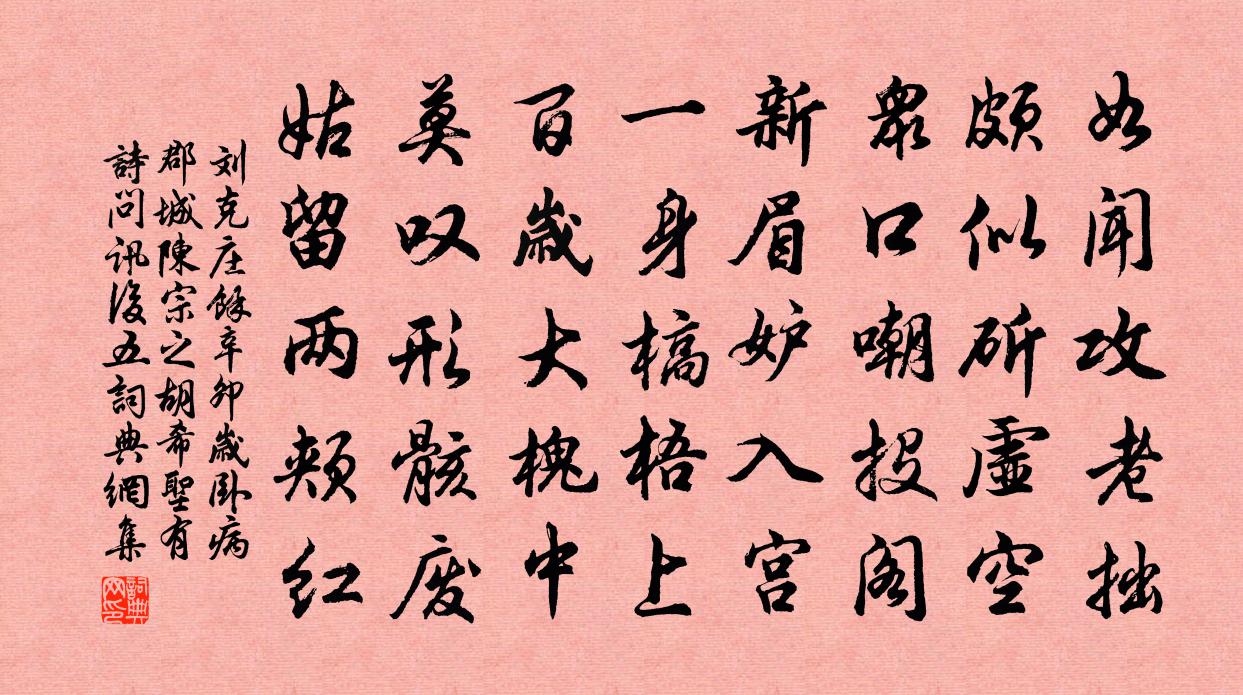 如闻攻老拙
颇似斫虚空
众口嘲投阁
新眉妒入宫
一身槁梧上
百岁大槐中
莫叹形骸废
姑留两颊红
刘克庄馀辛卯岁卧病
郡城陳宗之胡希聖有
詩问讯後五詞典網集
詞典网印